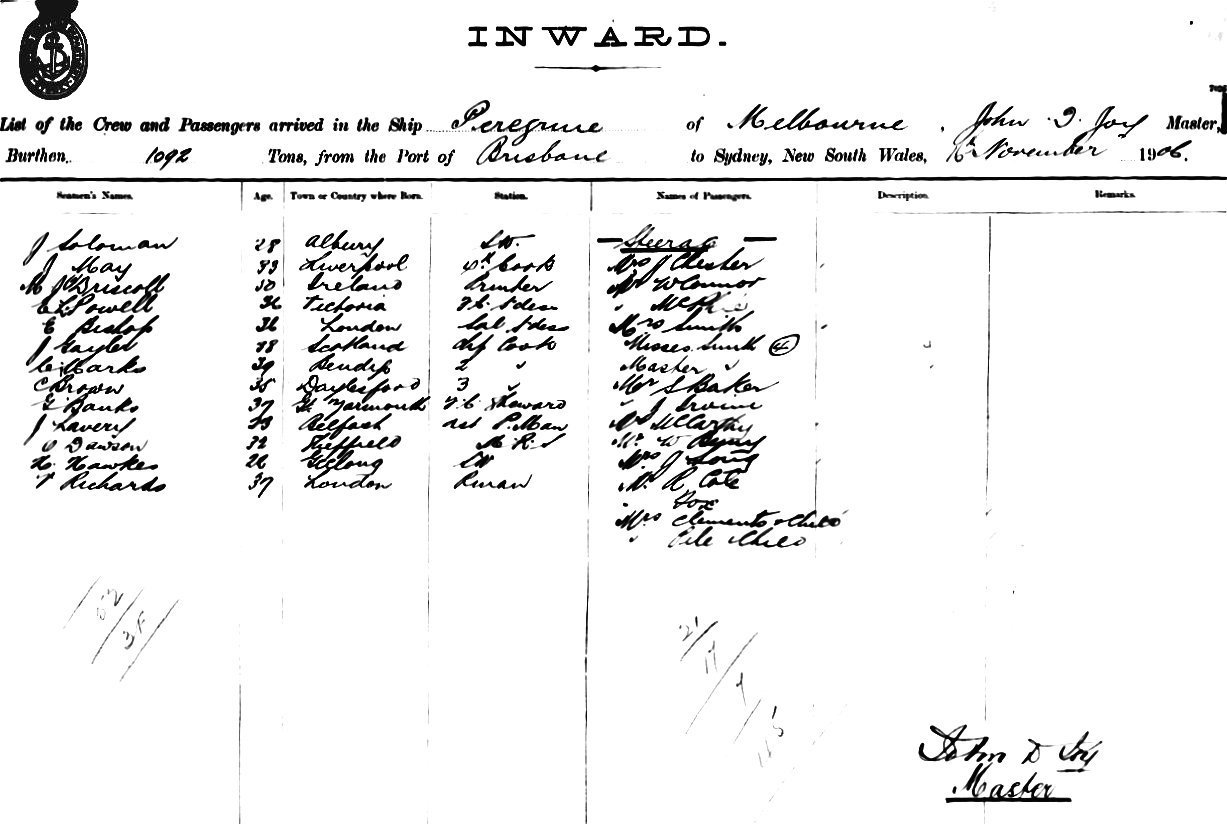 INWARD.
List of the Crew and Passengers arrived in the Ship Peregrine of Melbourne, John D. Joy Master,
Burthen, 1092 Tons, from the Port of Brisbane to Sydney, New South Wales, November 1906.
Seamen's Names. Age. Town or Country where Born. Station. Names of Passengers. Description. Remarks.
J Soloman 28 Albury SW. Steerage
J May 33 Liverpool Cook Mrs J Chester
M Driscoll 30 Ireland Printer Mr W Connor
E L Powell 36 Victoria F.C. Stdess " McPhie
E Bishop 36 London Sal Stdess Mrs Smith
J Gayler 38 Scotland Chf Cook Misses Smith
C Marks 39 Bendigo 2 " Master "
C Brown 35 Daylesford 3 " Mr S Baker
G Banks 37 Gt Yarmouth F.C. Steward " J Irvine
J Lavery 33 Belfast P. Man Mr McCarthy
O Dawson 32 Sheffield M.R.S Mr W
H. Hawkes 26 Geelong SW Mrs J Long
T Richards 37 London Mr R Cote
" Fox
Mrs Clements & Child
" & Child
52
21
17
4
John D Joy
Master